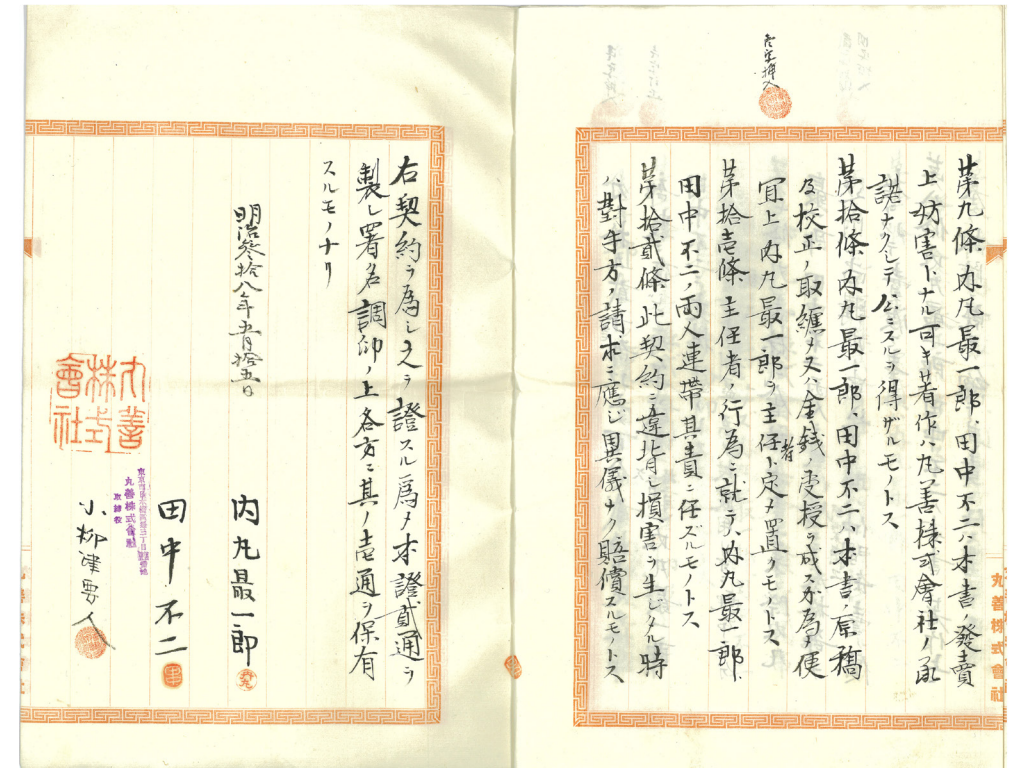 壱字挿入
第九條 内丸最一郎、田中不二ハ本書ノ發賣
上妨害トナル可キ著作ハ丸善株式會社ノ承
諾ナクシテ公ニスルヲ得ザルモノトス
第拾條 内丸最一郎、田中不二ハ本書ノ原稿
及校正ノ取纏メ又ハ金銭ノ受授ヲ成スガ為メ便
冝上内丸最一郎ヲ主任者ト定メ置クモノトス
第拾壱條 主任者ノ行為ニ就テハ内丸最一郎、
田中不二ノ両人連帯其責ニ任ズルモノトス
第拾貳條 此契約ニ違背シ損害ヲ生シタル時
ハ對手方ノ請求ニ應ジ異儀ナク賠償スルモノトス
丸善株式會社
右契約ヲ為シ之ヲ證スル為メ本證貳通ヲ
製シ署名調印ノ上各方ニ其ノ壱通ヲ保有
スルモノナリ
明治参拾八年五月拾五日
内丸最一郎
田中不二
丸善株式會社
取締役
小柳津要人
丸善株式會社